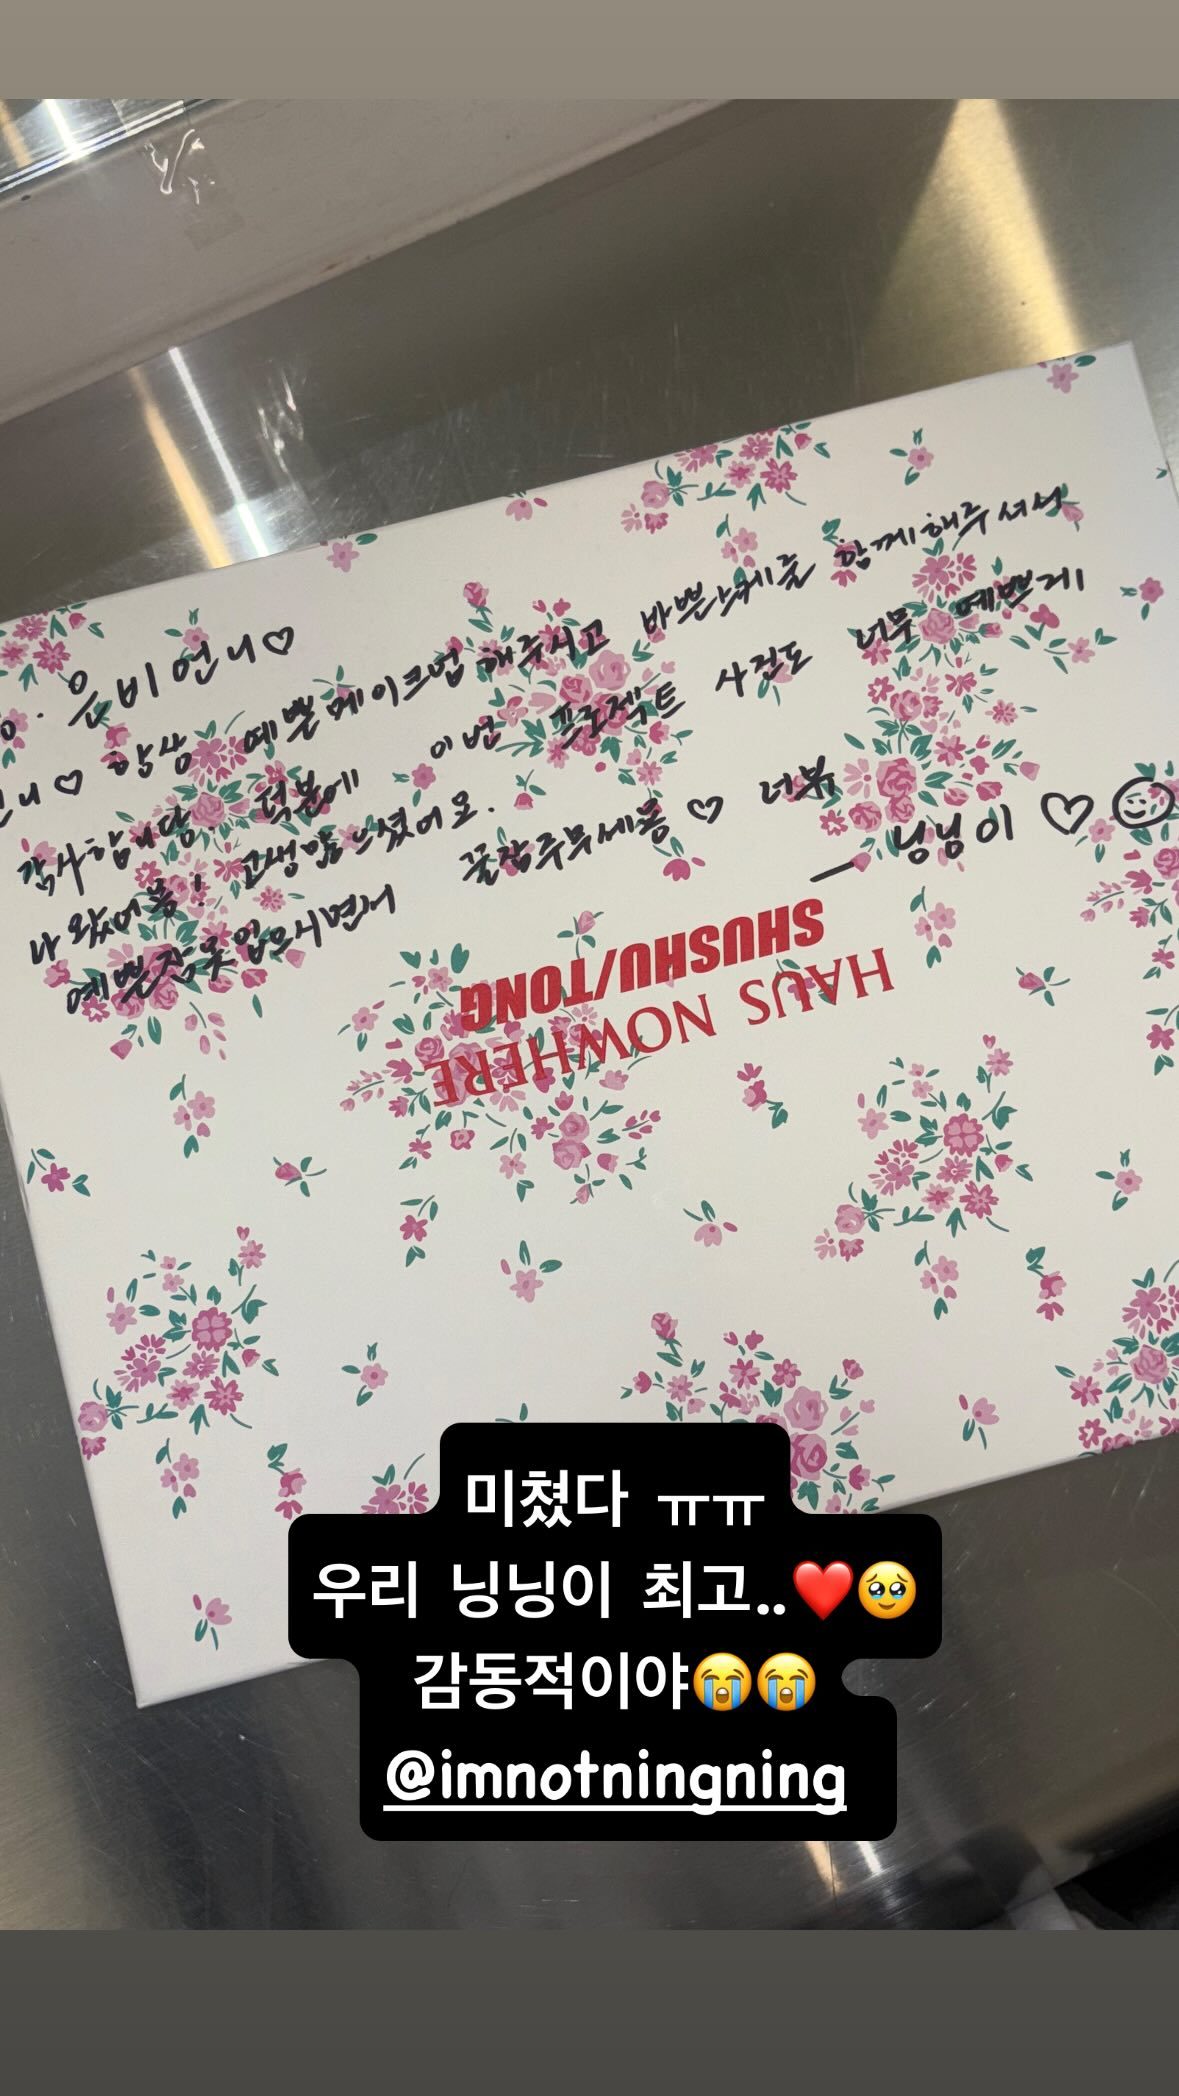 은비언니♡
언니♡ 항상 예쁜메이크업 해주시고 바쁜스케줄 함께해주셔서
감사합니당. 덕분에 이번 프로젝트 사진도 너무 예쁘게
나왔어용! 고생많으셨어요. 너뷰
예쁜잠옷입으시면서 꿀잠주무세용♡
— 닝닝이♡
SHUSHU/TONG
HAUS NOWHERE
미쳤다 ㅠㅠ
우리 닝닝이 최고..❤️🥹
감동적이야😭😭
@imnotningning